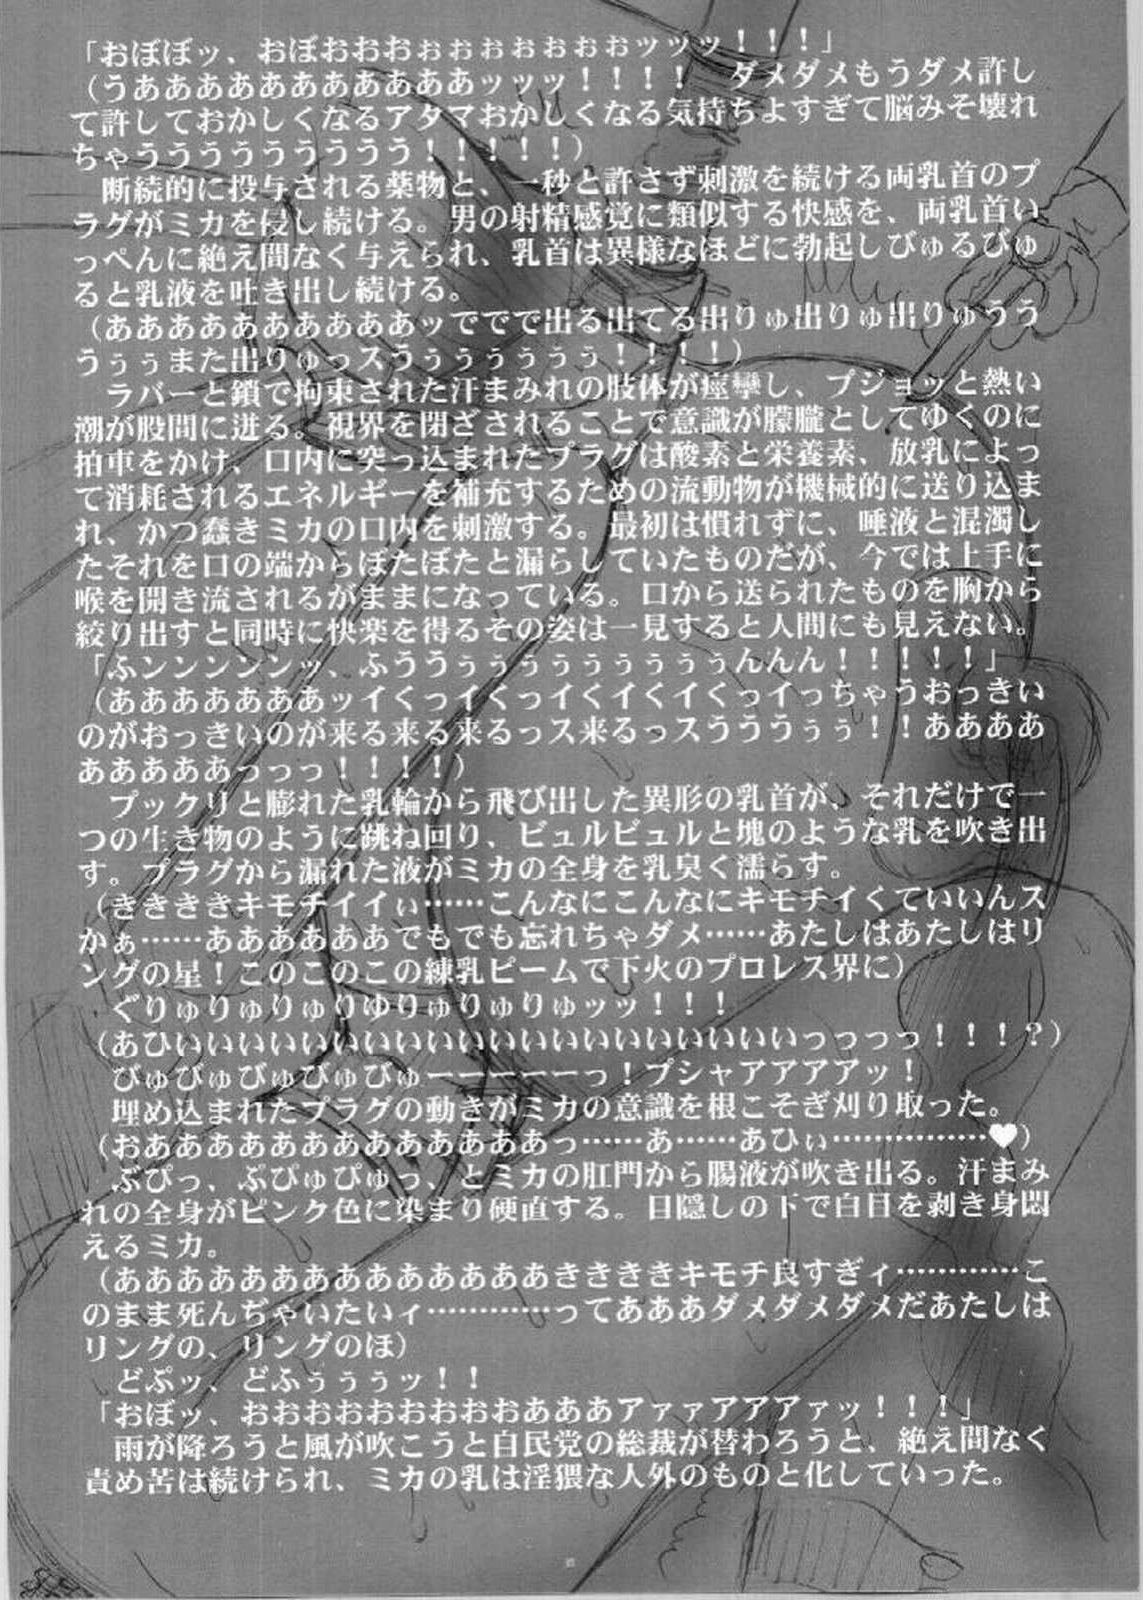 「おぼぼッ、おぼおおおぉぉぉぉぉぉぉッッッ！！！」
（うああああああああああああッッッ！！！！　ダメダメもうダメ許し
て許しておかしくなるアタマおかしくなる気持ちよすぎて脳みそ壊れ
ちゃううううううううう！！！！！）
断続的に投与される薬物と、一秒と許さず刺激を続ける両乳首のプ
ラグがミカを侵し続ける。男の射精感覚に類似する快感を、両乳首い
っぺんに絶え間なく与えられ、乳首は異様なほどに勃起しびゅるびゅ
ると乳液を吐き出し続ける。
（ああああああああああッででで出る出てる出りゅ出りゅ出りゅうう
うぅぅまた出りゅっスうぅぅぅぅぅぅ！！！！）
ラバーと鎖で拘束された汗まみれの肢体が痙攣し、プジョッと熱い
潮が股間に迸る。視界を閉ざされることで意識が朦朧としてゆくのに
拍車をかけ、口内に突っ込まれたプラグは酸素と栄養素、放乳によっ
て消耗されるエネルギーを補充するための流動物が機械的に送り込ま
れ、かつ蠢きミカの口内を刺激する。最初は慣れずに、唾液と混濁し
たそれを口の端からぼたぼたと漏らしていたものだが、今では上手に
喉を開き流されるがままになっている。口から送られたものを胸から
絞り出すと同時に快楽を得るその姿は一見すると人間にも見えない。
「ふンンンンンッ、ふううぅぅぅぅぅぅぅぅぅんんん！！！！！」
（あああああああッイくっイくっイくイくイくっイっちゃうおっきい
のがおっきいのが来る来る来るっス来るっスうううぅぅ！！ああああ
ああああああっっっ！！！！）
プックリと膨れた乳輪から飛び出した異形の乳首が、それだけで一
つの生き物のように跳ね回り、ビュルビュルと塊のような乳を吹き出
す。プラグから漏れた液がミカの全身を乳臭く濡らす。
（きききキモチイイぃ……こんなにこんなにキモチイくていいんス
かぁ……ああああああでもでも忘れちゃダメ……あたしはあたしはリ
ングの星！このこのこの練乳ビームで下火のプロレス界に）
ぐりゅりゅりゅりゅりゆりゅりゅりゅッッ！！！
（あひぃいいいいいいいいいいいいいいいいいいいいっっっっ！！！？）
びゅびゅびゅびゅびゅーーーーーっ！プシャアアアアッ！
埋め込まれたプラグの動きがミカの意識を根こそぎ刈り取った。
（おああああああああああああああっ……ぁ……あひぃ……………♥）
ぶぴっ、ぷぴゅぴゅっ、とミカの肛門から腸液が吹き出る。汗まみ
れの全身がピンク色に染まり硬直する。目隠しの下で白目を剥き身悶
えるミカ。
（ああああああああああああああきききキモチ良すぎィ…………こ
のまま死んぢゃいたいィ…………ってあああダメダメダメだあたしは
リングの、リングのほ）
どぷッ、どふぅぅぅッ！！
「おぼッ、おおおおおおおおおあああアァァアアアァッ！！！」
雨が降ろうと風が吹こうと自民党の総裁が替わろうと、絶え間なく
責め苦は続けられ、ミカの乳は淫猥な人外のものと化していった。